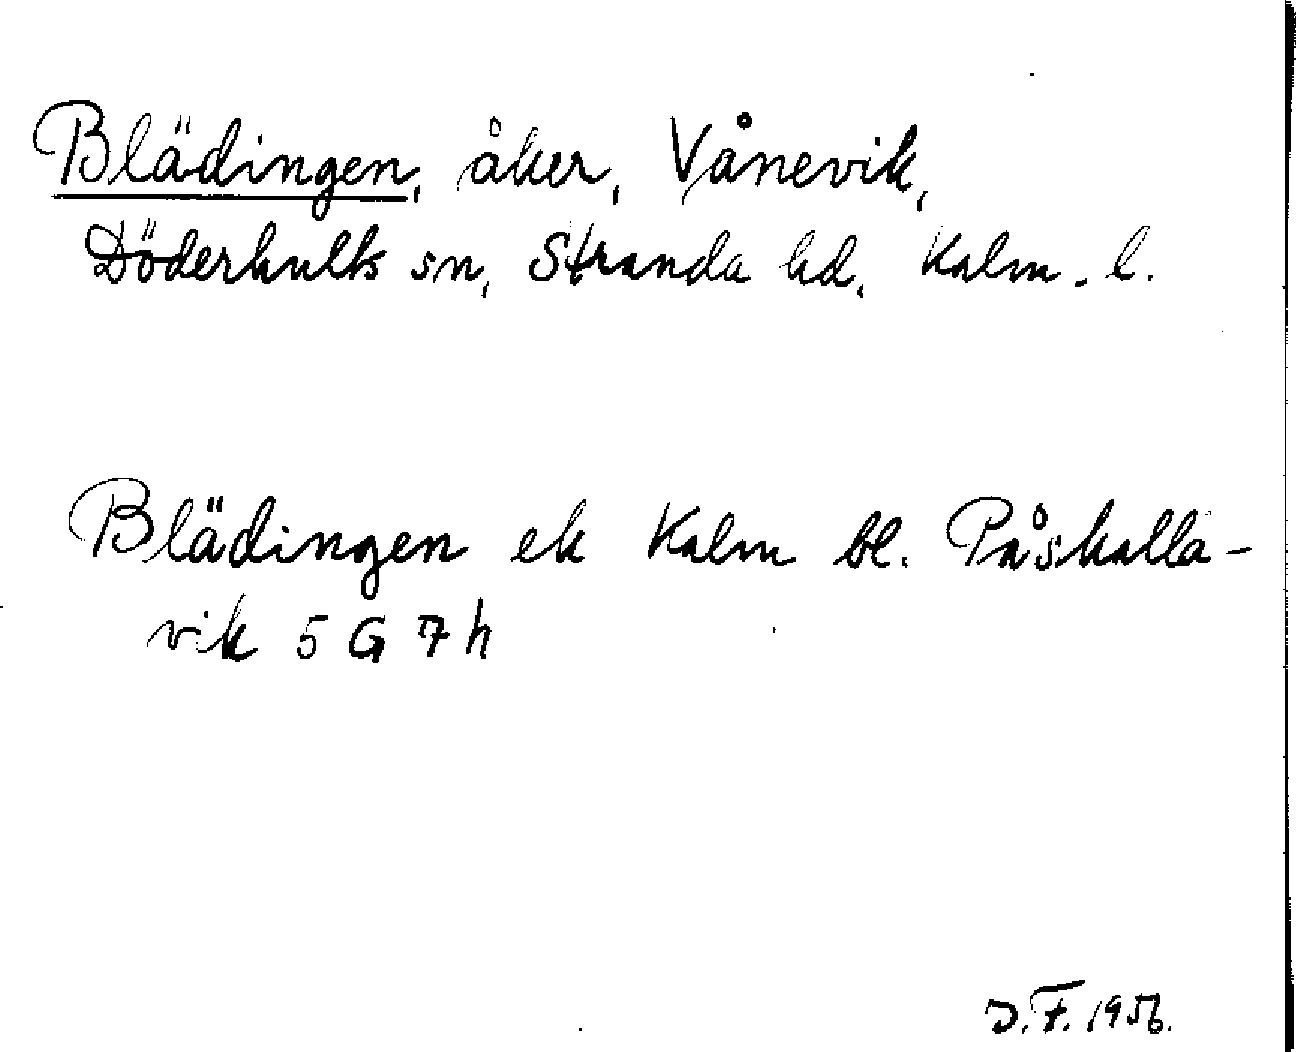 Blädingen, åker, Vånevik,
Döderhults sn, Stranda hd, Kalm. l.
Blädingen ek Kalm bl. Påskalla-
vik 5 G 7 h
J.F. 1956.